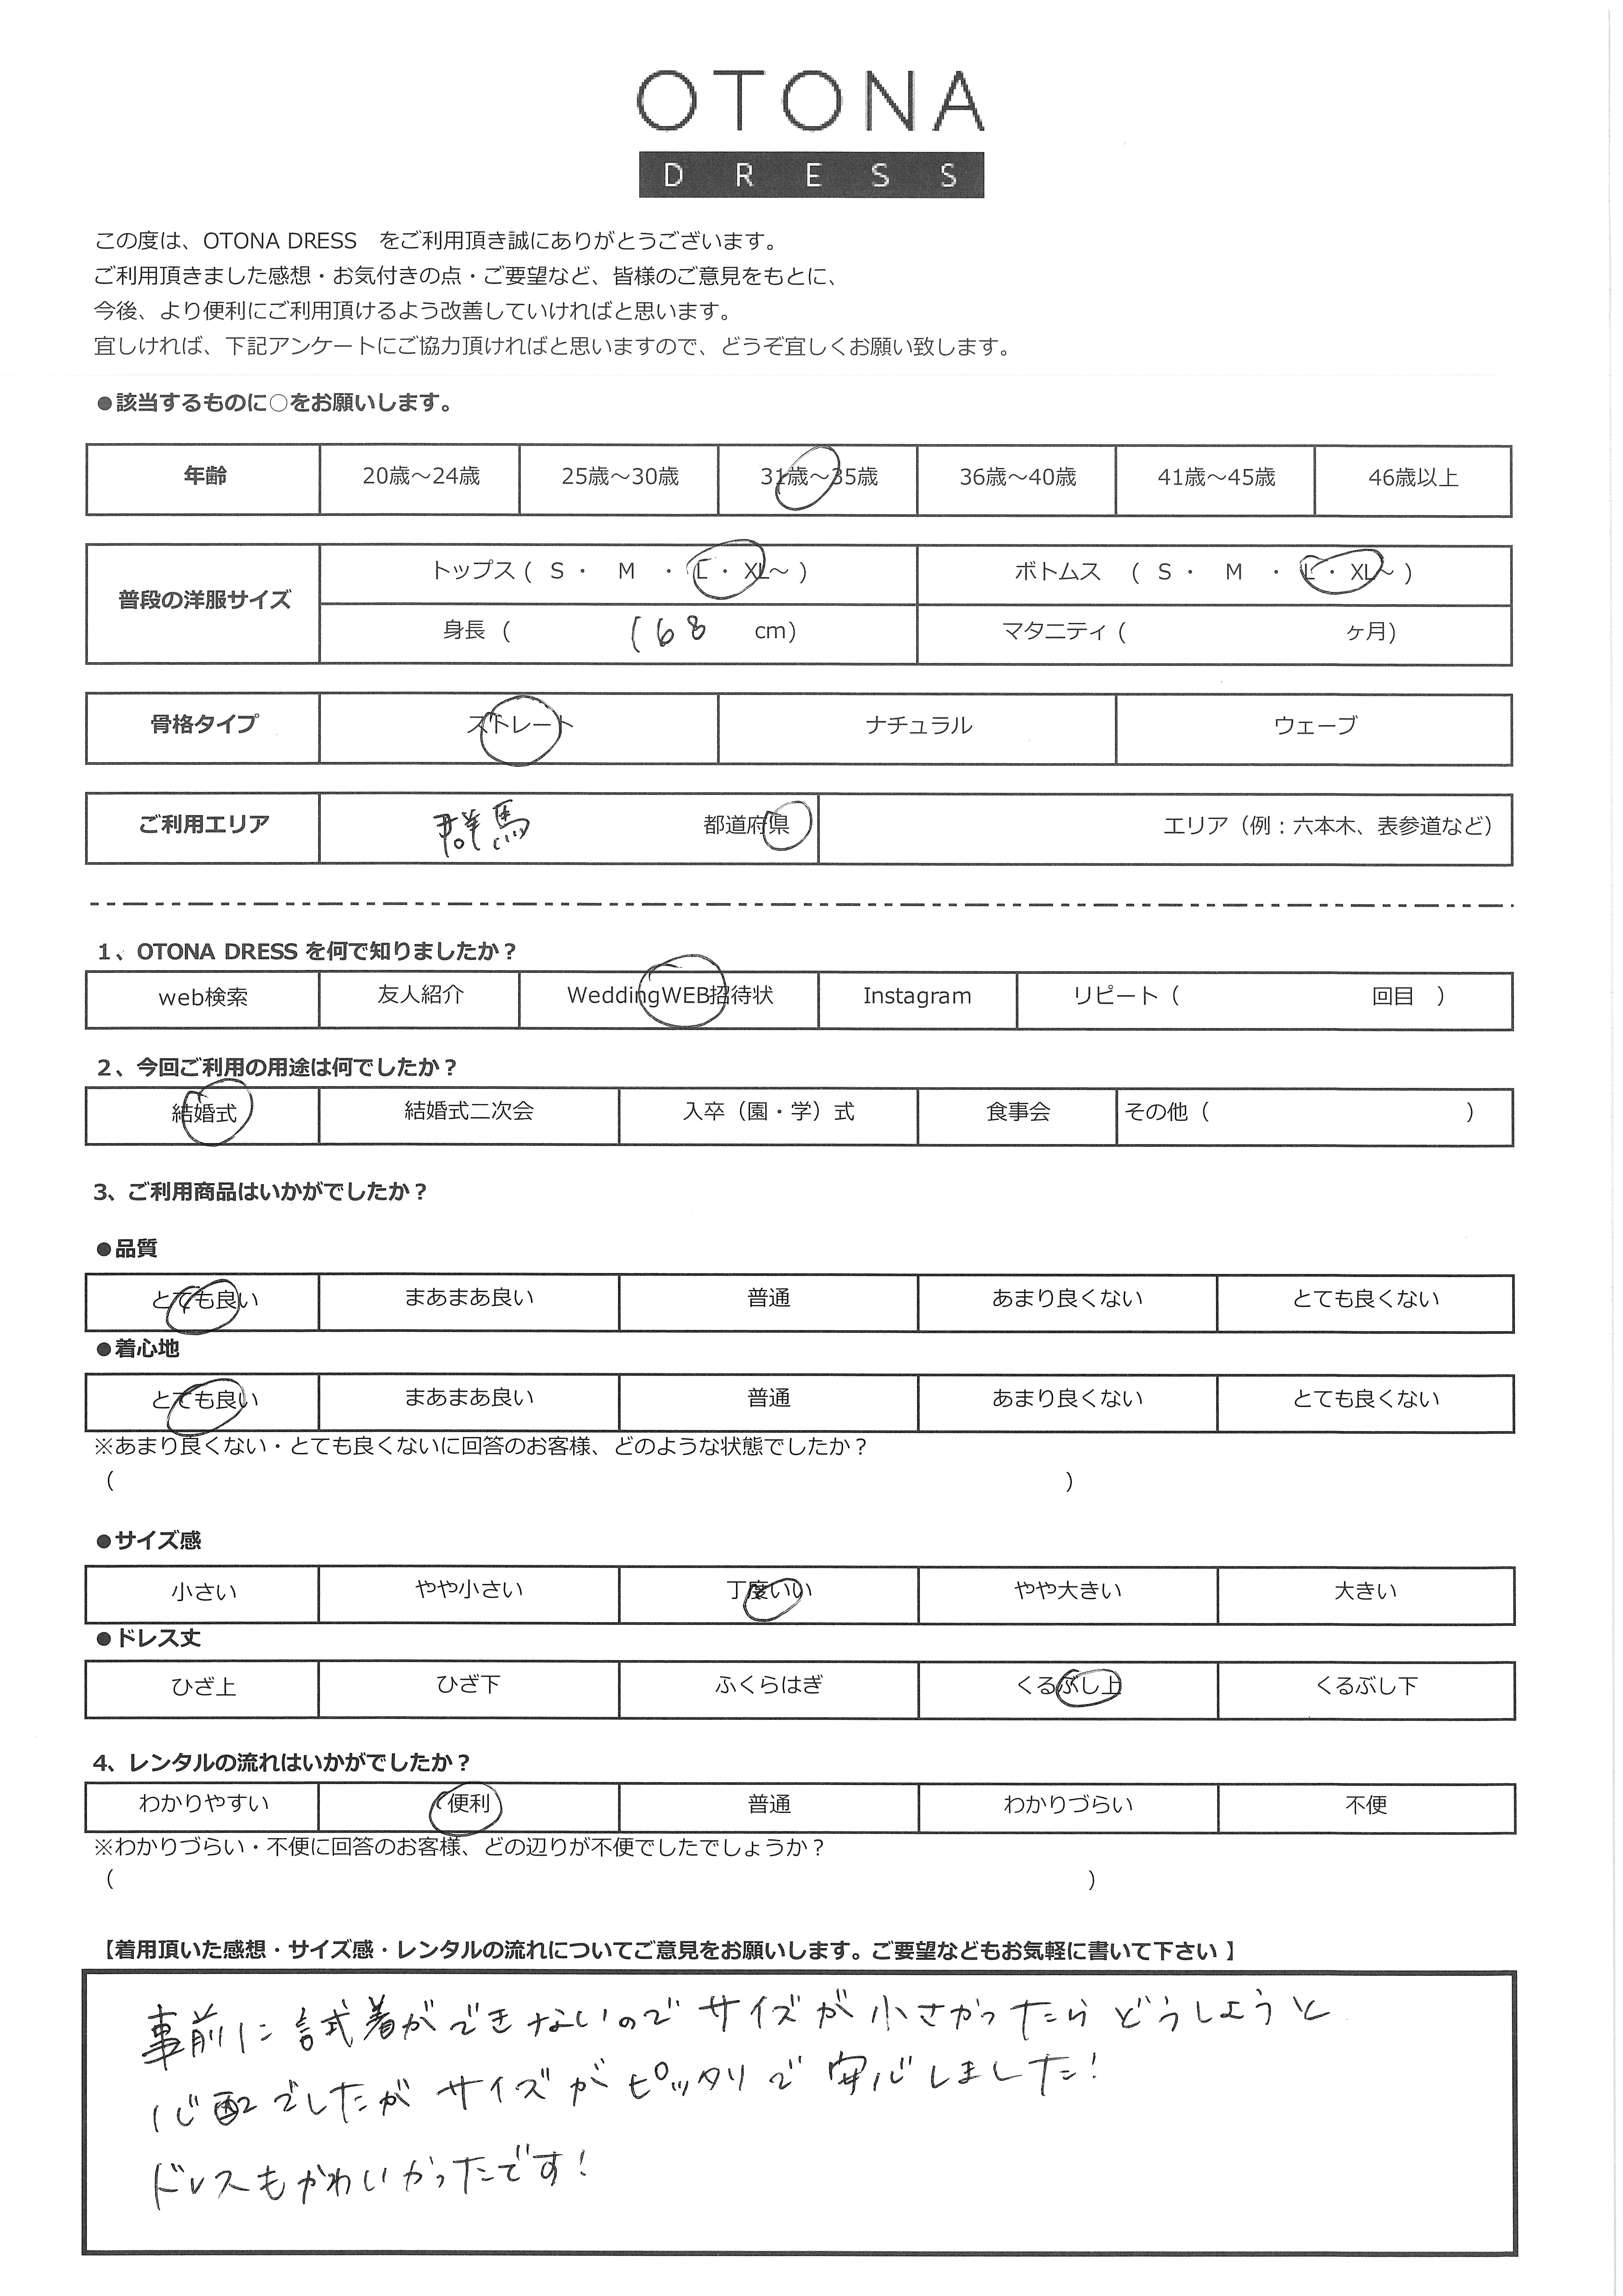 OTONA
DRESS
この度は、OTONA DRESS　をご利用頂き誠にありがとうございます。
ご利用頂きました感想・お気付きの点・ご要望など、皆様のご意見をもとに、
今後、より便利にご利用頂けるよう改善していければと思います。
宜しければ、下記アンケートにご協力頂ければと思いますので、どうぞ宜しくお願い致します。
●該当するものに○をお願いします。
年齢 20歳～24歳 25歳～30歳 31歳～35歳 36歳～40歳 41歳～45歳 46歳以上
普段の洋服サイズ トップス ( S ・ M ・ L ・ XL～ ) ボトムス ( S ・ M ・ L ・ XL～ )
身長 ( 168 cm) マタニティ ( ヶ月)
骨格タイプ ストレート ナチュラル ウェーブ
ご利用エリア 群馬 都道府県 エリア（例：六本木、表参道など）
1、OTONA DRESS を何で知りましたか？
web検索 友人紹介 WeddingWEB招待状 Instagram リピート（ 回目 ）
2、今回ご利用の用途は何でしたか？
結婚式 結婚式二次会 入卒（園・学）式 食事会 その他（ ）
3、ご利用商品はいかがでしたか？
●品質
とても良い まあまあ良い 普通 あまり良くない とても良くない
●着心地
とても良い まあまあ良い 普通 あまり良くない とても良くない
※あまり良くない・とても良くないに回答のお客様、どのような状態でしたか？
（ ）
●サイズ感
小さい やや小さい 丁度いい やや大きい 大きい
●ドレス丈
ひざ上 ひざ下 ふくらはぎ くるぶし上 くるぶし下
4、レンタルの流れはいかがでしたか？
わかりやすい 便利 普通 わかりづらい 不便
※わかりづらい・不便に回答のお客様、どの辺りが不便でしたでしょうか？
（ ）
【着用頂いた感想・サイズ感・レンタルの流れについてご意見をお願いします。ご要望などもお気軽に書いて下さい 】
事前に試着ができないのでサイズが小さかったらどうしようと
心配でしたがサイズがピッタリで安心しました！
ドレスもかわいかったです！